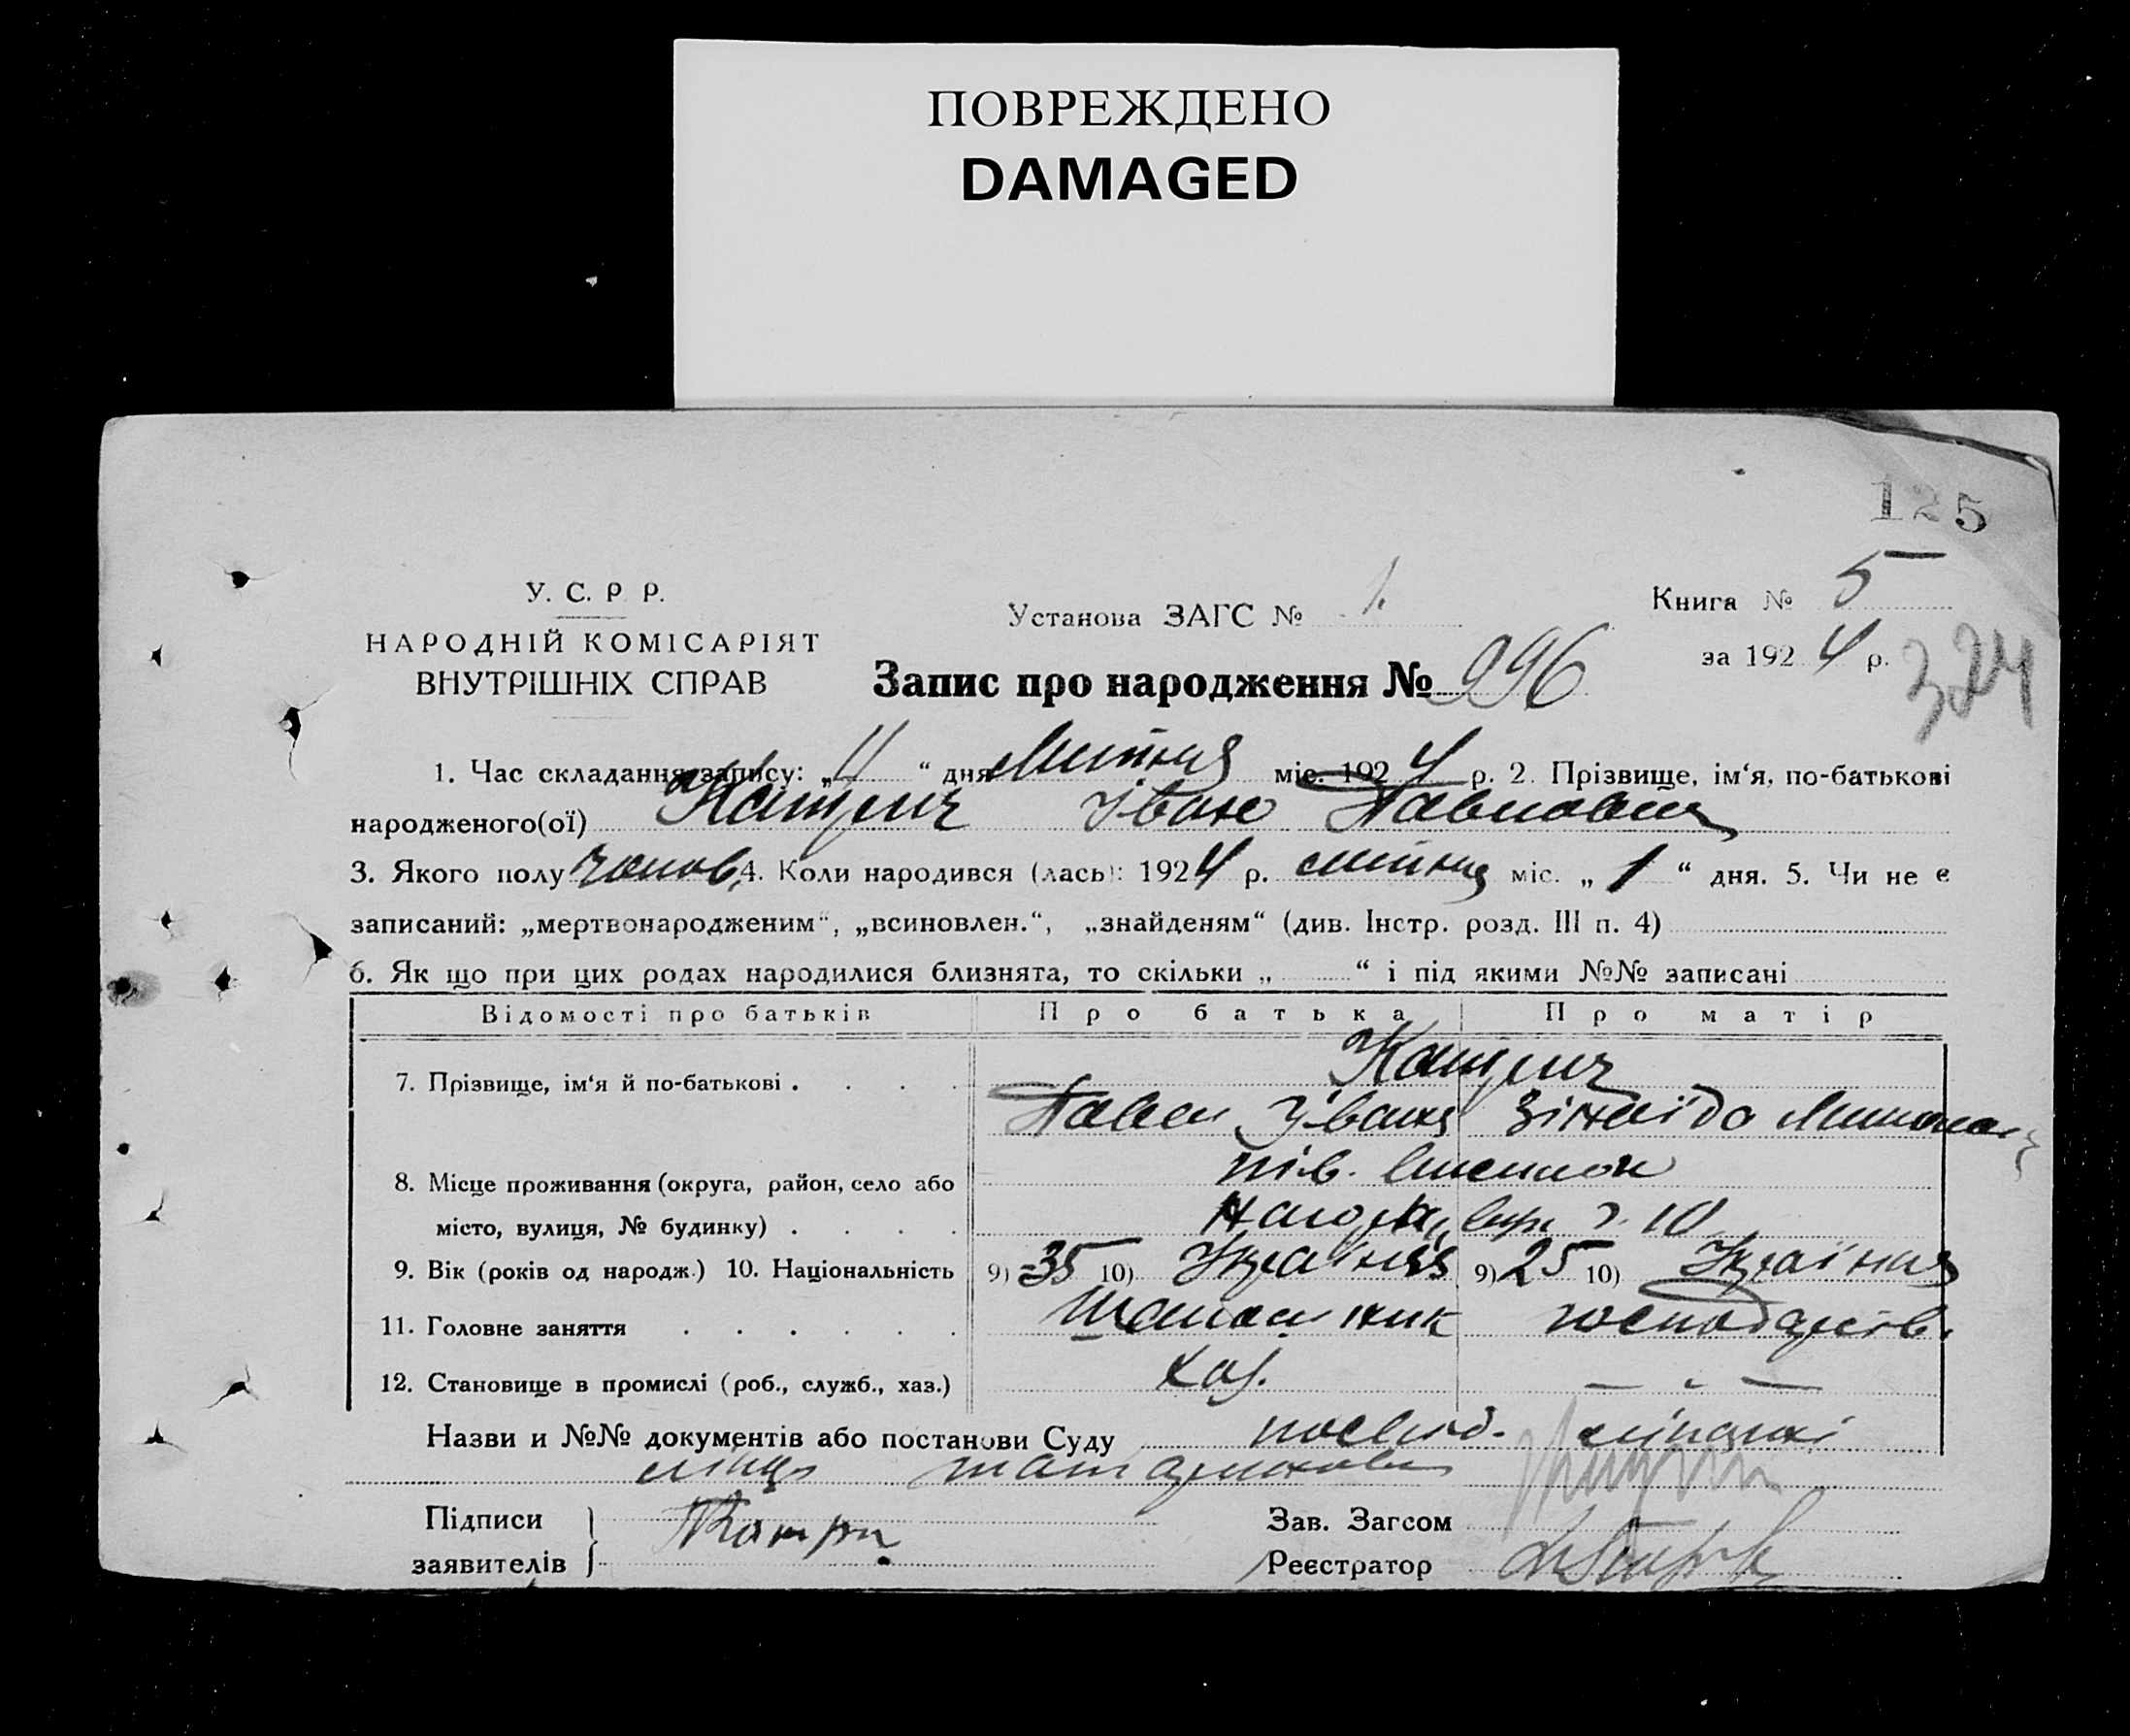 ПОВРЕЖДЕНО
DAMAGED
125
У. С. Р. Р.
НАРОДНІЙ КОМІСАРІЯТ
ВНУТРІШНІХ СПРАВ
Установа ЗАГС № 1.
Книга № 5
за 1924 р.
324
Запис про народження № 996
1. Час складання запису: „11“ дня Лютня міс. 1924 р. 2. Прізвище, ім‘я, по-батькові
народженого(ої) Катрич Іван Павлович
3. Якого полу чолов. 4. Коли народився (лась): 1924 р. лютня міс. „1“ дня. 5. Чи не є
записаний: „мертвонародженим“, „всиновлен.“, „знайденям“ (див. Інстр. розд. III п. 4)
6. Як що при цих родах народилися близнята, то скільки „ “ і під якими №№ записані
Відомості про батьків Про батька Про матір
7. Прізвище, ім‘я й по-батькові . . . . Катрич
Павел Іванов Зінаїда
8. Місце проживання (округа, район, село або
місто, вулиця, № будинку) . . . . 10
9. Вік (років од народж.) 10. Національність 9) 35 10) Україн 9) 25 10) Україн
11. Головне заняття . . . . . . господарств.
12. Становище в промислі (роб., служб., хаз.) хаз. — " —
Назви и №№ документів або постанови Суду посвід.
Підписи
заявителів
Катрич
Зав. Загсом
Реєстратор